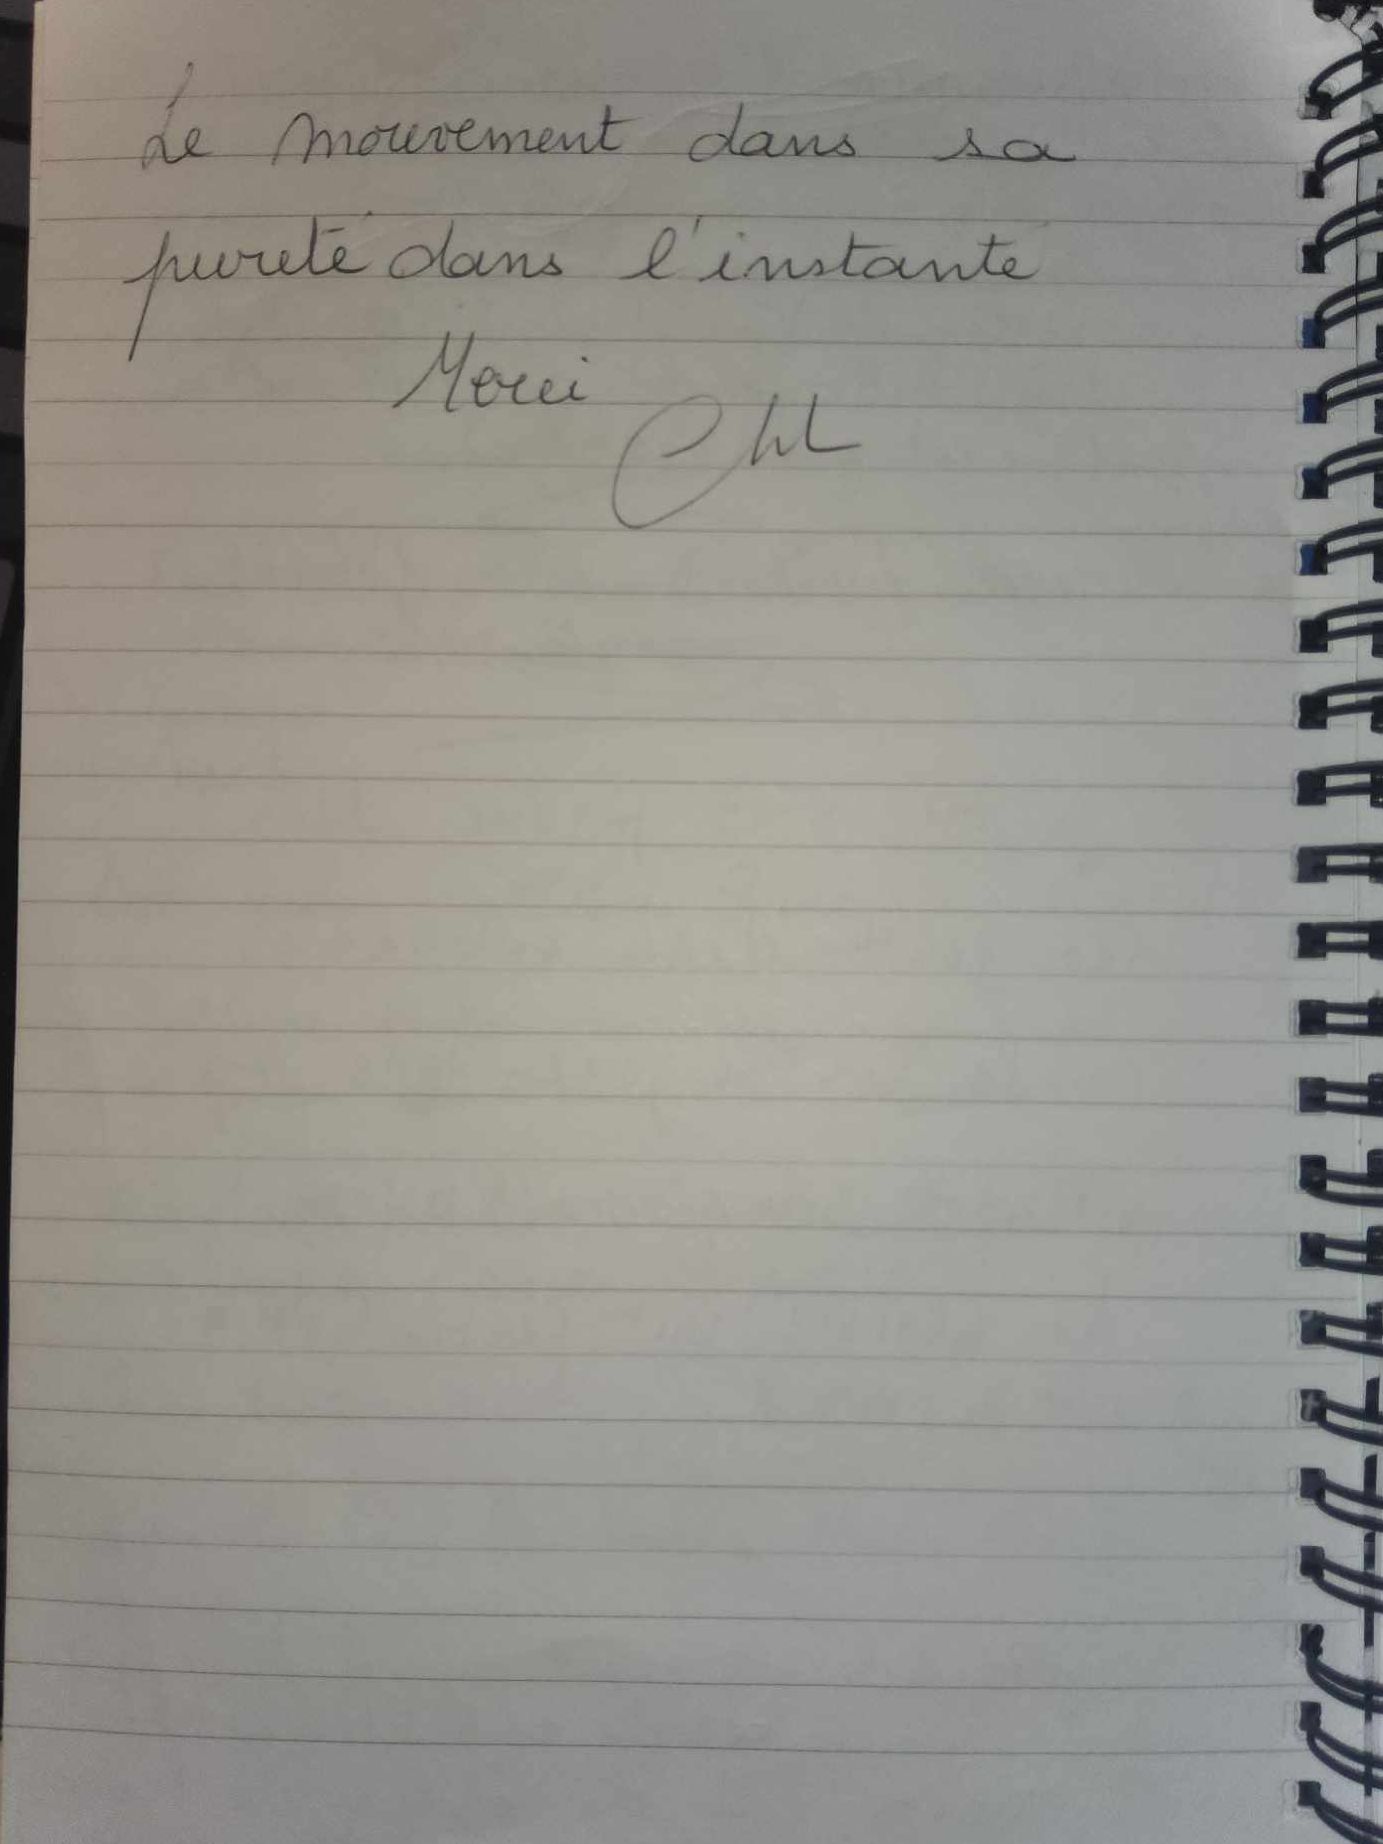 Le mouvement dans sa
pureté dans l'instante
Merci